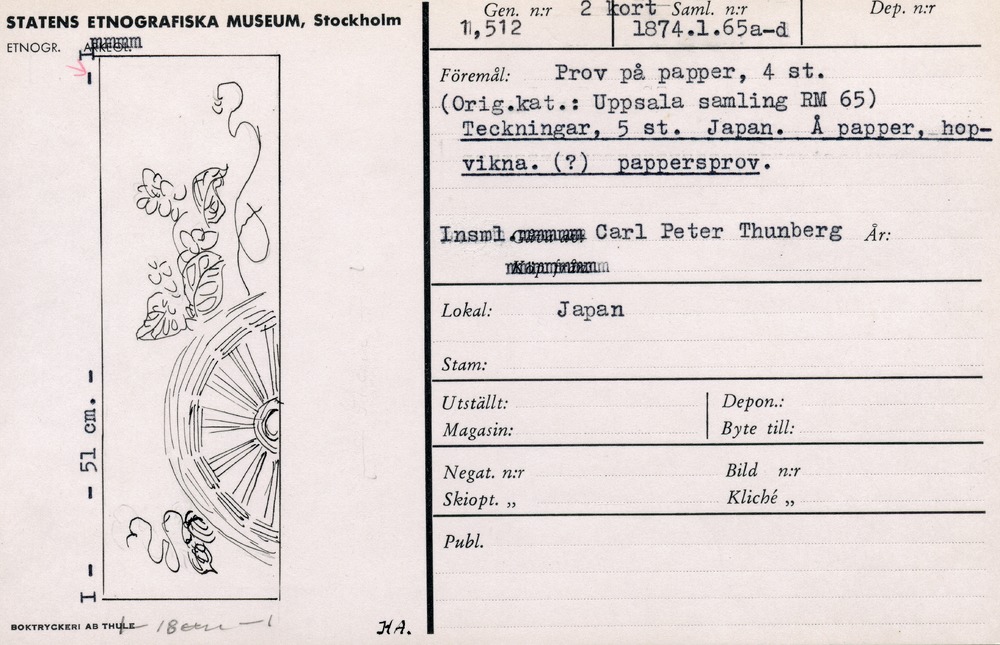 STATENS ETNOGRAFISKA MUSEUM, Stockholm
ETNOGR. ARKEOL.
I - - 51 cm. - - I
BOKTRYCKERI AB THULE
18 cm - 1
HA.
Gen. n:r 2 kort Saml. n:r Dep. n:r
11,512 1874.1.65a-d
Föremål: Prov på papper, 4 st.
(Orig.kat.: Uppsala samling RM 65)
Teckningar, 5 st. Japan. Å papper, hop-
vikna. (?) pappersprov.
Insml. Carl Peter Thunberg År:
Lokal: Japan
Stam:
Utställt: Depon.:
Magasin: Byte till:
Negat. n:r Bild n:r
Skiopt. „ Kliché „
Publ.